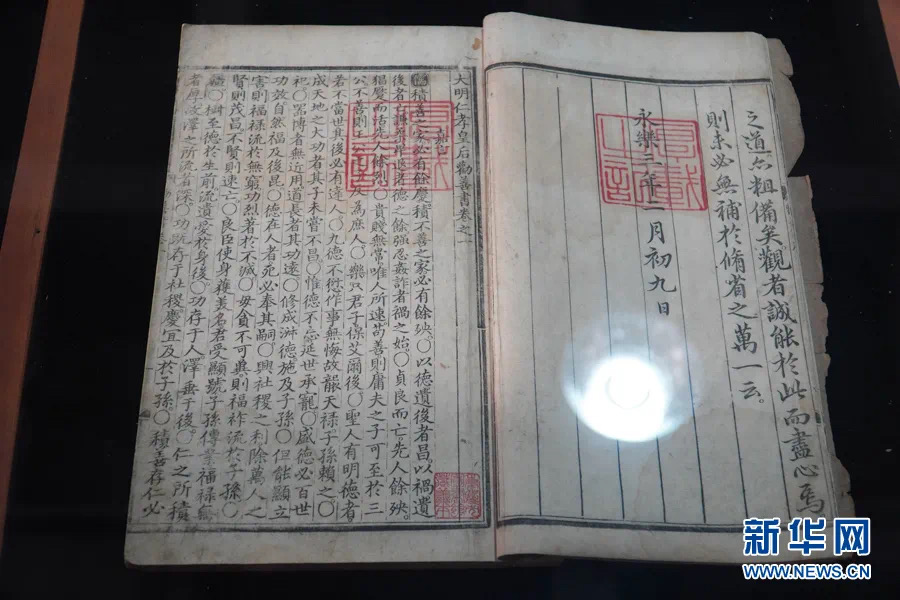 之道亦粗備矣觀者誠能於此而盡心焉
則未必無補於脩省之萬一云。
永樂三年二月初九日
大明仁孝皇后勸善書卷之一
嘉言
積善之家必有餘慶積不善之家必有餘殃〇以德遺後者昌以禍遺
後者亡謙柔卑退者德之餘強忍奸詐者禍之始〇貞良而亡先人餘殃
猖蹶而活先人餘烈〇貴賤無常唯人所速苟善則庸夫之子可至於三
公不善則王
反為庶人〇樂只君子保艾爾後〇聖人有明德者
若不當世其後必有達人〇九德不愆作事無悔故襲天祿子孫賴之〇
成天地之大功者其子孫未嘗不昌〇惟德不忘延世承寵〇盛德必百世
祀〇器博者無近用道長者其功遠〇修成淑德施及子孫〇但能顯立
功效自然福及後昆〇德在人者死必奉其嗣〇興社稷之利除萬人之
害則福祿流於無窮功烈著於不滅〇毋貪不可冀則福祚流於子孫〇
賢則茂昌不賢則速亡〇良臣使身穫美名君受顯號子孫傳業福祿無
樹至德於生前流遺愛於身後〇功存于人澤垂于後〇仁之所積
者厚故澤之所流者深〇功既存于社稷慶宜及於子孫〇積善存仁必
新华网
WWW.NEWS.CN